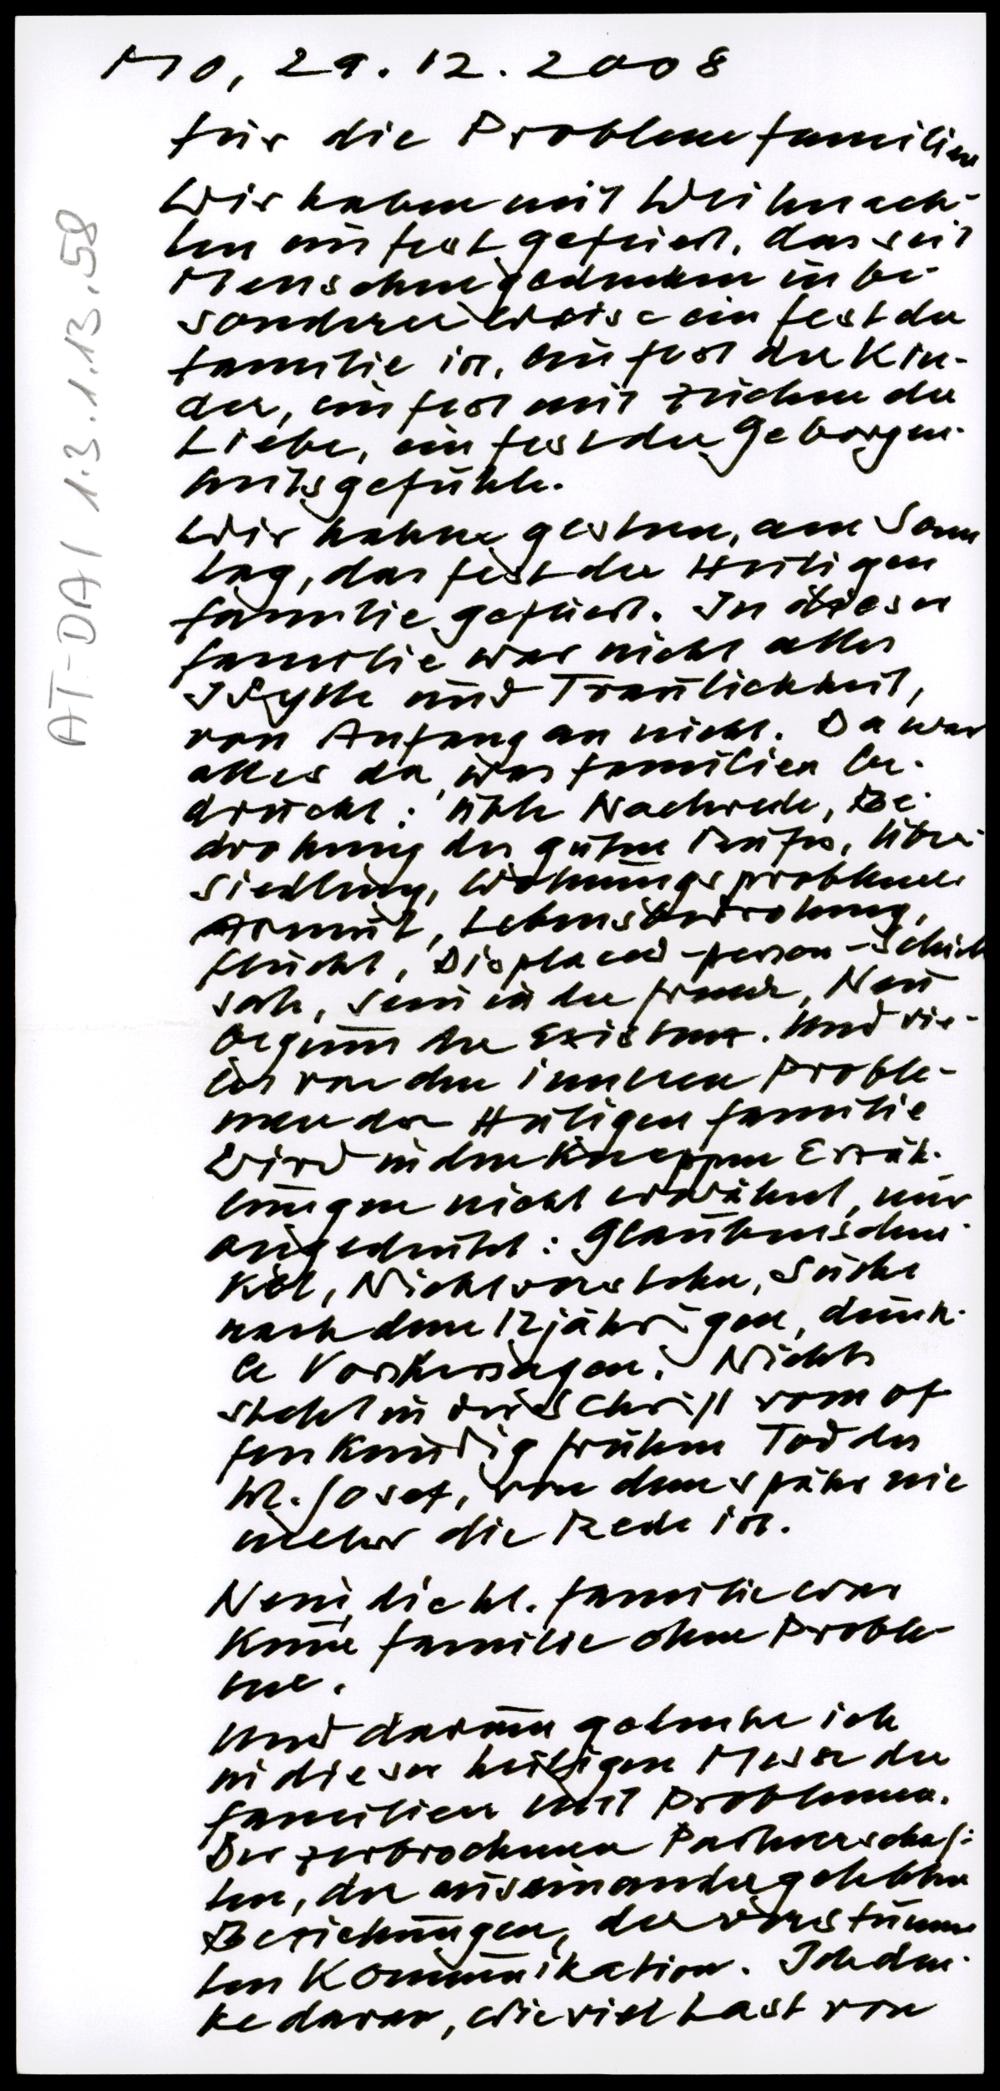 Mo, 29.12.2008
für die Problemfamilien
Wir haben mit Weihnach-
ten ein Fest gefeiert, das seit
Menschengedenken in be-
sonderer Weise ein Fest der
Familie ist, ein Fest der Kin-
der, ein Fest mit Zeichen der
Liebe, ein Fest der Geborgen-
heitsgefühle.
Wir haben gestern, am Sonn
tag, das Fest der Heiligen
Familie gefeiert. In dieser
Familie war nicht alles
Idylle und Traulichkeit,
von Anfang an nicht. Da war
alles da, was Familien be-
drückt: üble Nachrede, Be-
drohung des guten Rufes, Über-
siedlung, Wohnungsprobleme
Armut, Lebensbedrohung,
Flucht, Displaced-person-Schick
sale, Sein in der Fremde, Neu
beginn der Existenz. Und vie-
les von den inneren Proble-
men der Heiligen Familie
wird in den knappen Erzäh-
lungen nicht erwähnt, nur
angedeutet: Glaubensdun-
kel, Nichtverstehen, Suche
nach dem 12jährigen, dunk-
le Vorhersagen. Nichts
steht in der Schrift vom of
fenkundig frühen Tod des
hl. Josef, von dem später nie
mehr die Rede ist.
Nein, die hl. Familie war
keine Familie ohne Proble-
me.
Und darum gedenke ich
in dieser heiligen Messe der
Familien mit Problemen.
Der zerbrochenen Partnerschaf-
ten, der auseinandergelebten
Beziehungen, der verstumm
ten Kommunikation. Ich den-
ke daran, wie viel Last von
AT-DA I 1.3.1.13.58